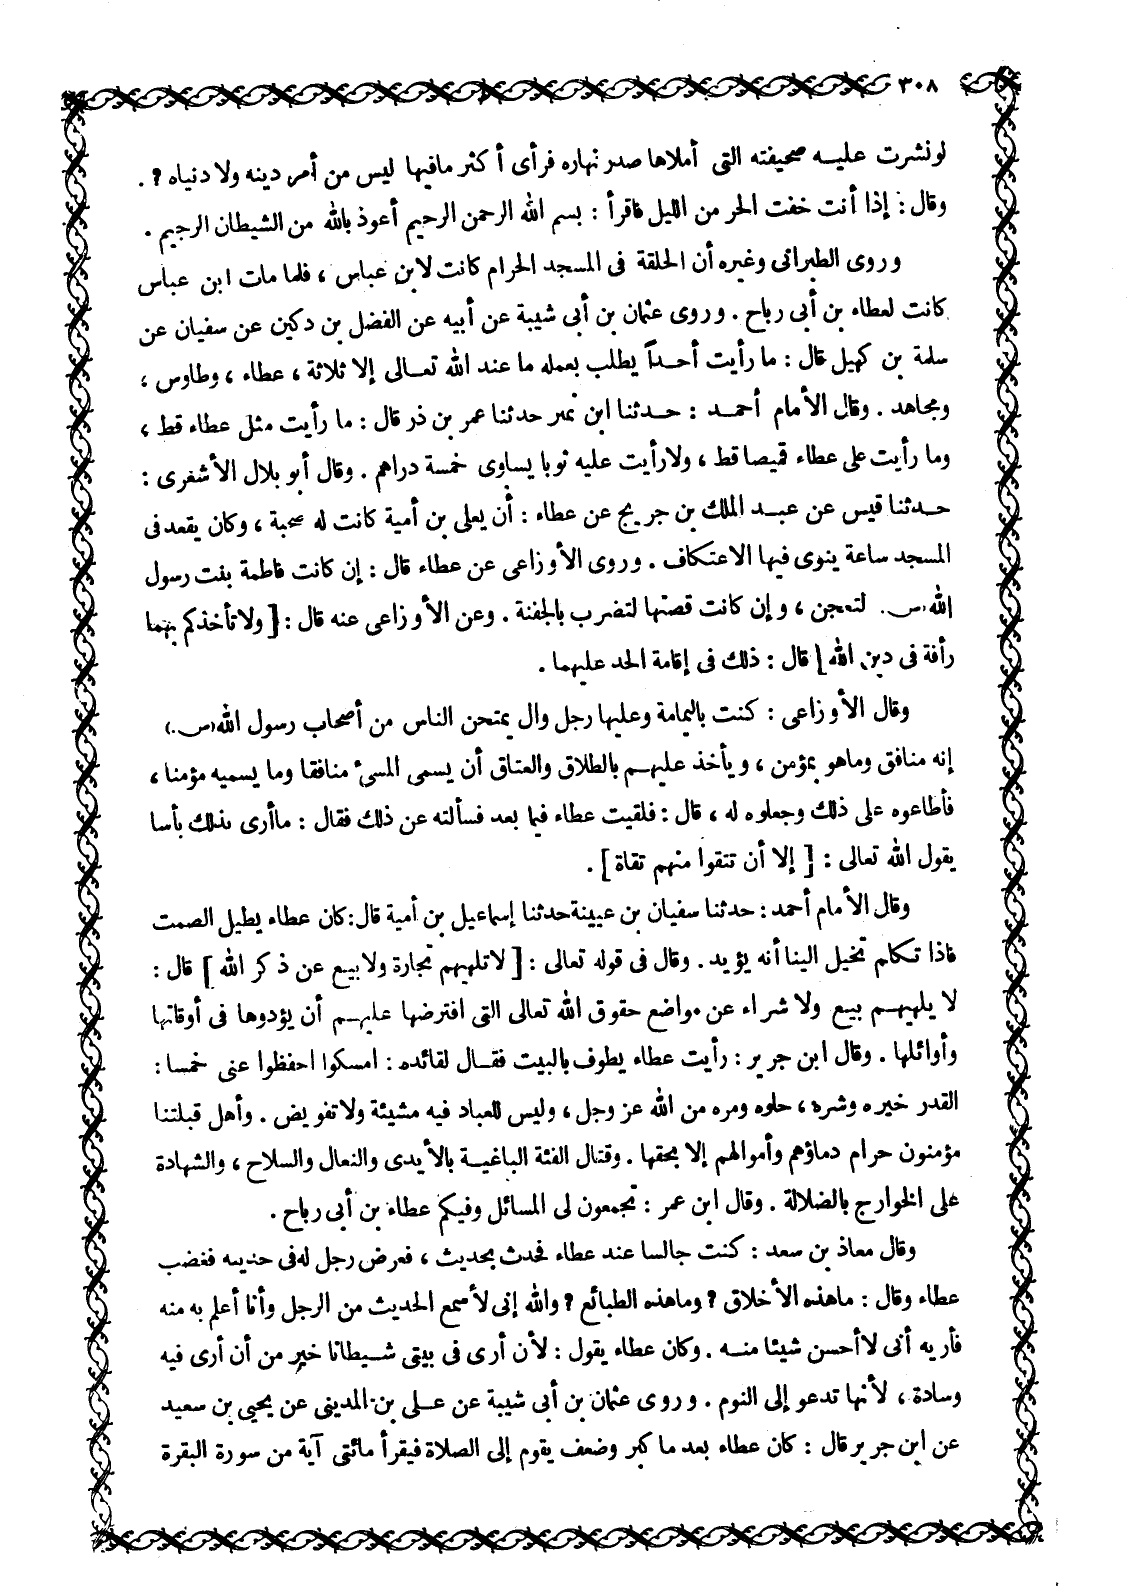 ٣٠٨
لو نشرت عليه صحيفته التى أملاها صدر نهاره فرأى أكثر مافيها ليس من أمر دينه ولا دنياه ? .
وقال : إذا أنت خفت الحر من الليل فاقرأ : بسم الله الرحمن الرحيم أعوذ بالله من الشيطان الرجيم .
وروى الطبرانى وغيره أن الحلقة فى المسجد الحرام كانت لابن عباس ، فلما مات ابن عباس
كانت لعطاء بن أبى رباح . وروى عثمان بن أبى شيبة عن أبيه عن الفضل بن دكين عن سفيان عن
سلمة بن كهيل قال : ما رأيت أحداً يطلب بعمله ما عند الله تعالى إلا ثلاثة ، عطاء ، وطاوس ،
ومجاهد . وقال الأمام أحمد : حدثنا ابن نمير حدثنا عمر بن ذر قال : ما رأيت مثل عطاء قط ،
وما رأيت على عطاء قميصا قط ، ولا رأيت عليه ثوبا يساوى خمسة دراهم . وقال أبو بلال الأشغرى :
حدثنا قيس عن عبد الملك بن جريج عن عطاء : أن يعلى بن أمية كانت له صحبة ، وكان يقعد فى
المسجد ساعة ينوى فيها الاعتكاف . وروى الأوزاعى عن عطاء قال : إن كانت فاطمة بنت رسول
الله (س) لتعجن ، وإن كانت قصتها لتضرب بالجفنة . وعن الأوزاعى عنه قال : [ ولا تأخذكم بهما
رأفة فى دين الله ] قال : ذلك فى إقامة الحد عليهما .
وقال الأوزاعى : كنت باليمامة وعليها رجل وال يمتحن الناس من أصحاب رسول الله (س.)
إنه منافق وماهو بمؤمن ، ويأخذ عليهم بالطلاق والعتاق أن يسمى المسئ منافقا وما يسميه مؤمنا ،
فأطاعوه على ذلك وجعلوه له ، قال : فلقيت عطاء فيما بعد فسألته عن ذلك فقال : ماأرى بذلك بأسا
يقول الله تعالى : [ إلا أن تتقوا منهم تقاة ] .
وقال الأمام أحمد : حدثنا سفيان بن عيينة حدثنا إسماعيل بن أمية قال : كان عطاء يطيل الصمت
فاذا تكلم تخيل الينا أنه يؤيد . وقال فى قوله تعالى : [ لا تلهيهم تجارة ولا بيع عن ذكر الله ] قال :
لا يلهيهم بيع ولا شراء عن مواضع حقوق الله تعالى التى افترضها عليهم أن يؤدوها فى أوقاتها
وأوائلها . وقال ابن جرير : رأيت عطاء يطوف بالبيت فقال لقائده : امسكوا احفظوا عنى خمسا :
القدر خيره وشره ، حلوه ومره من الله عز وجل ، وليس للعباد فيه مشيئة ولا تفويض . وأهل قبلتنا
مؤمنون حرام دماؤهم وأموالهم إلا بحقها . وقتال الفئة الباغية بالأيدى والنعال والسلاح ، والشهادة
على الخوارج بالضلالة . وقال ابن عمر : تجمعون لى المسائل وفيكم عطاء بن أبى رباح .
وقال معاذ بن سعد : كنت جالسا عند عطاء فحدث بحديث ، فعرض رجل له فى حديثه فغضب
عطاء وقال : ماهذه الأخلاق ? وماهذه الطبائع ? والله إنى لأسمع الحديث من الرجل وأنا أعلم به منه
فأريه أنى لا أحسن شيئا منه . وكان عطاء يقول : لأن أرى فى بيتى شيطانا خير من أن أرى فيه
وسادة ، لأنها تدعو إلى النوم . وروى عثمان بن أبى شيبة عن على بن المدينى عن يحيى بن سعيد
عن ابن جرير قال : كان عطاء بعد ما كبر وضعف يقوم إلى الصلاة فيقرأ مائتى آية من سورة البقرة